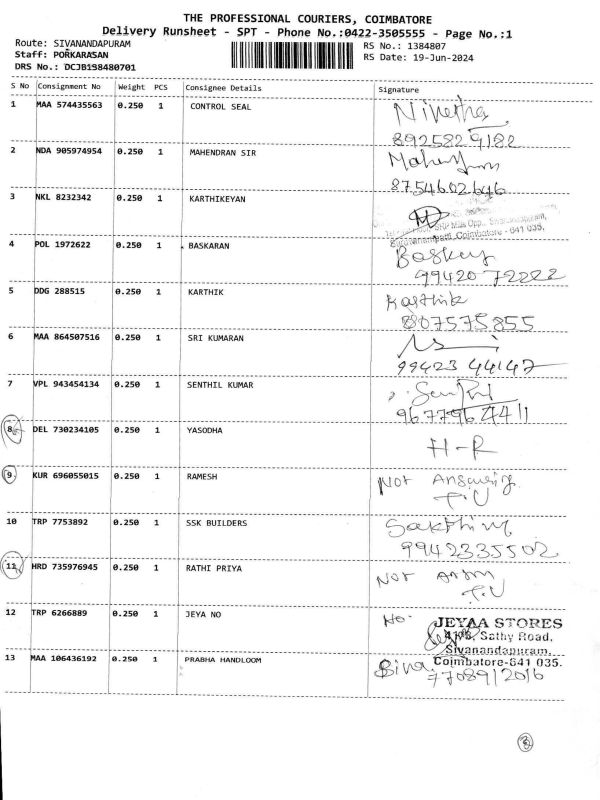 THE PROFESSIONAL COURIERS, COIMBATORE
Delivery Runsheet - SPT - Phone No.:0422-3505555 - Page No.:1
Route: SIVANANDAPURAM RS No.: 1384807
Staff: PORKARASAN RS Date: 19-Jun-2024
DRS No.: DCJB138480701
S No Consignment No Weight PCS Consignee Details Signature
1 MAA 574435563 0.250 1 CONTROL SEAL Nivetha
8925829182
2 NDA 905974954 0.250 1 MAHENDRAN SIR
8754602646
3 NKL 8232342 0.250 1 KARTHIKEYAN
SRP Mills Opp., Sivanandapuram,
Saravanampatti, Coimbatore - 641 035.
4 POL 1972622 0.250 1 BASKARAN Baskar
9942072222
5 DDG 288515 0.250 1 KARTHIK Karthik
8807575855
6 MAA 864507516 0.250 1 SRI KUMARAN
99423 44147
7 VPL 943454134 0.250 1 SENTHIL KUMAR
9677964411
8 DEL 730234105 0.250 1 YASODHA H-R
9 KUR 696055015 0.250 1 RAMESH Not
T.U
10 TRP 7753892 0.250 1 SSK BUILDERS
9942335502
11 HRD 735976945 0.250 1 RATHI PRIYA Not
T.U
12 TRP 6266889 0.250 1 JEYA NO No. JEYAA STORES
Sathy Road,
Sivanandapuram,
Coimbatore-641 035.
13 MAA 106436192 0.250 1 PRABHA HANDLOOM Siva
7708912016
3